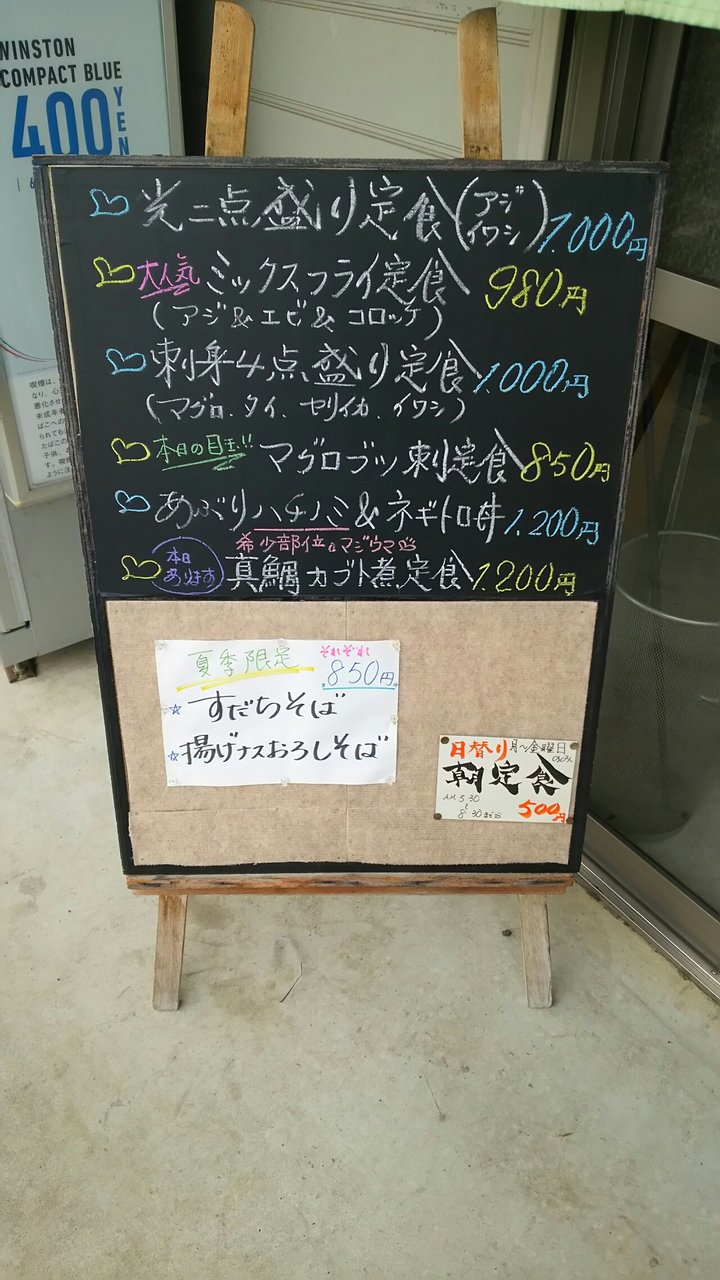 WINSTON
COMPACT BLUE
400YEN
光二点盛り定食(アジ イワシ)1.000円
大人気 ミックスフライ定食 980円
(アジ&エビ&コロッケ)
刺身4点盛り定食 1.000円
(マグロ、タイ、ヤリイカ、イワシ)
本日の目玉!! マグロブツ刺定食 850円
あぶりハチノミ&ネギトロ丼 1.200円
希少部位
本日あります 真鯛カブト煮定食 1.200円
夏季限定 それぞれ 850円
☆すだちそば
☆揚げナスおろしそば
日替り 月〜金曜日のみ
朝定食
AM 5:30
〜
8:30まで
500円